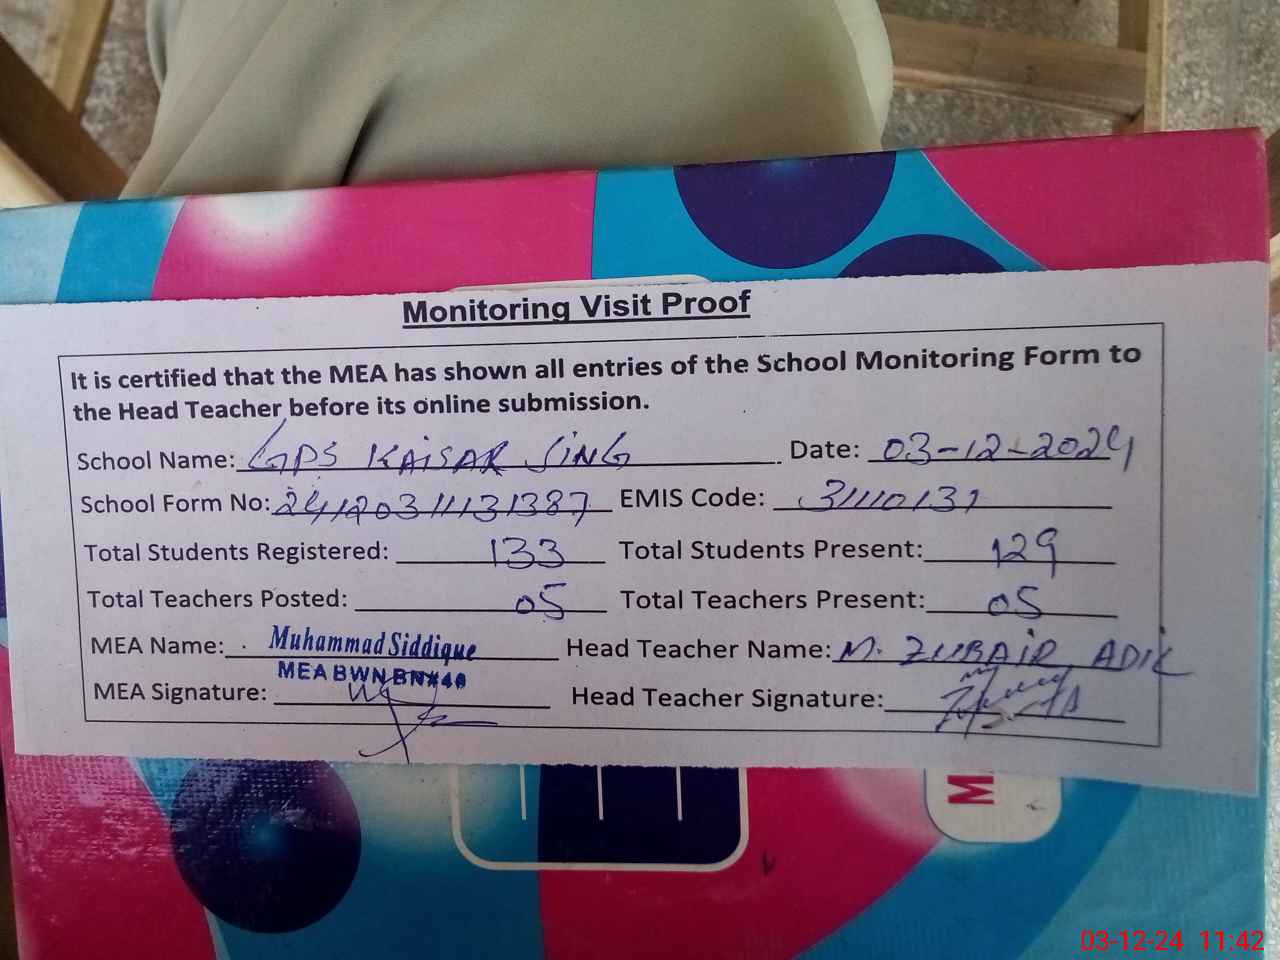 Monitoring Visit Proof
It is certified that the MEA has shown all entries of the School Monitoring Form to
the Head Teacher before its online submission.
School Name: GPS KAISAR SING Date: 03-12-2024
School Form No: 24120311131387 EMIS Code: 31110131
Total Students Registered: 133 Total Students Present: 129
Total Teachers Posted: 05 Total Teachers Present: 05
MEA Name: Muhammad Siddique Head Teacher Name: M. ZUBAIR ADIL
MEA BWN BN#40
MEA Signature: Head Teacher Signature:
M
03-12-24 11:42